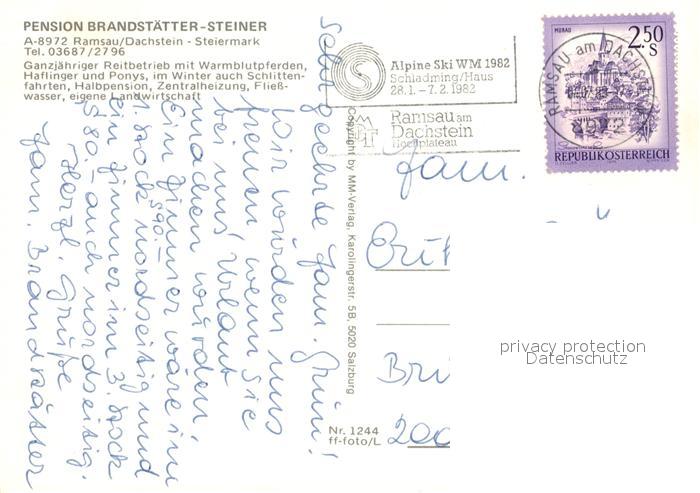 PENSION BRANDSTÄTTER-STEINER
A-8972 Ramsau/Dachstein - Steiermark
Tel. 03687/2796
Ganzjähriger Reitbetrieb mit Warmblutpferden,
Haflinger und Ponys, im Winter auch Schlitten-
fahrten, Halbpension, Zentralheizung, Fließ-
wasser, eigene Landwirtschaft
Alpine Ski WM 1982
Schladming/Haus
28.1. – 7.2. 1982
Ramsau am
Dachstein
Hochplateau
RAMSAU am DACHSTEIN
8972
MURAU
2.50
S
REPUBLIK ÖSTERREICH
Sehr geehrte Fam. Grün!
Wir würden uns
freuen, wenn Sie
bei uns Urlaub
machen würden.
Ein Zimmer wäre im
1. Stock nordseitig und
S 90.–
ein Zimmer im 3. Stock
S 80.– auch nordseitig.
Herzl. Grüße
Fam. Brandstätter
Copyright by MM-Verlag, Karolingerstr. 5B, 5020 Salzburg
Fam.
Nr. 1244
ff-foto/L
privacy protection
Datenschutz